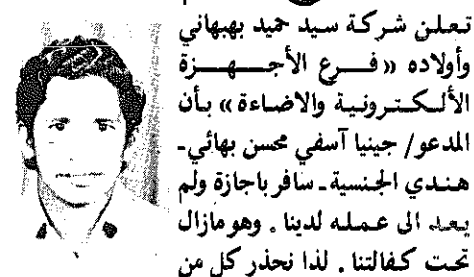 تعلن شركة سيد حميد بهبهاني
وأولاده «فرع الأجهزة
الألكترونية والاضاءة» بأن
المدعو/ جينيا آسفي محسن بهائي-
هندي الجنسية- سافر باجازة ولم
يعد الى عمله لدينا. وهو مازال
تحت كفالتنا. لذا نحذر كل من